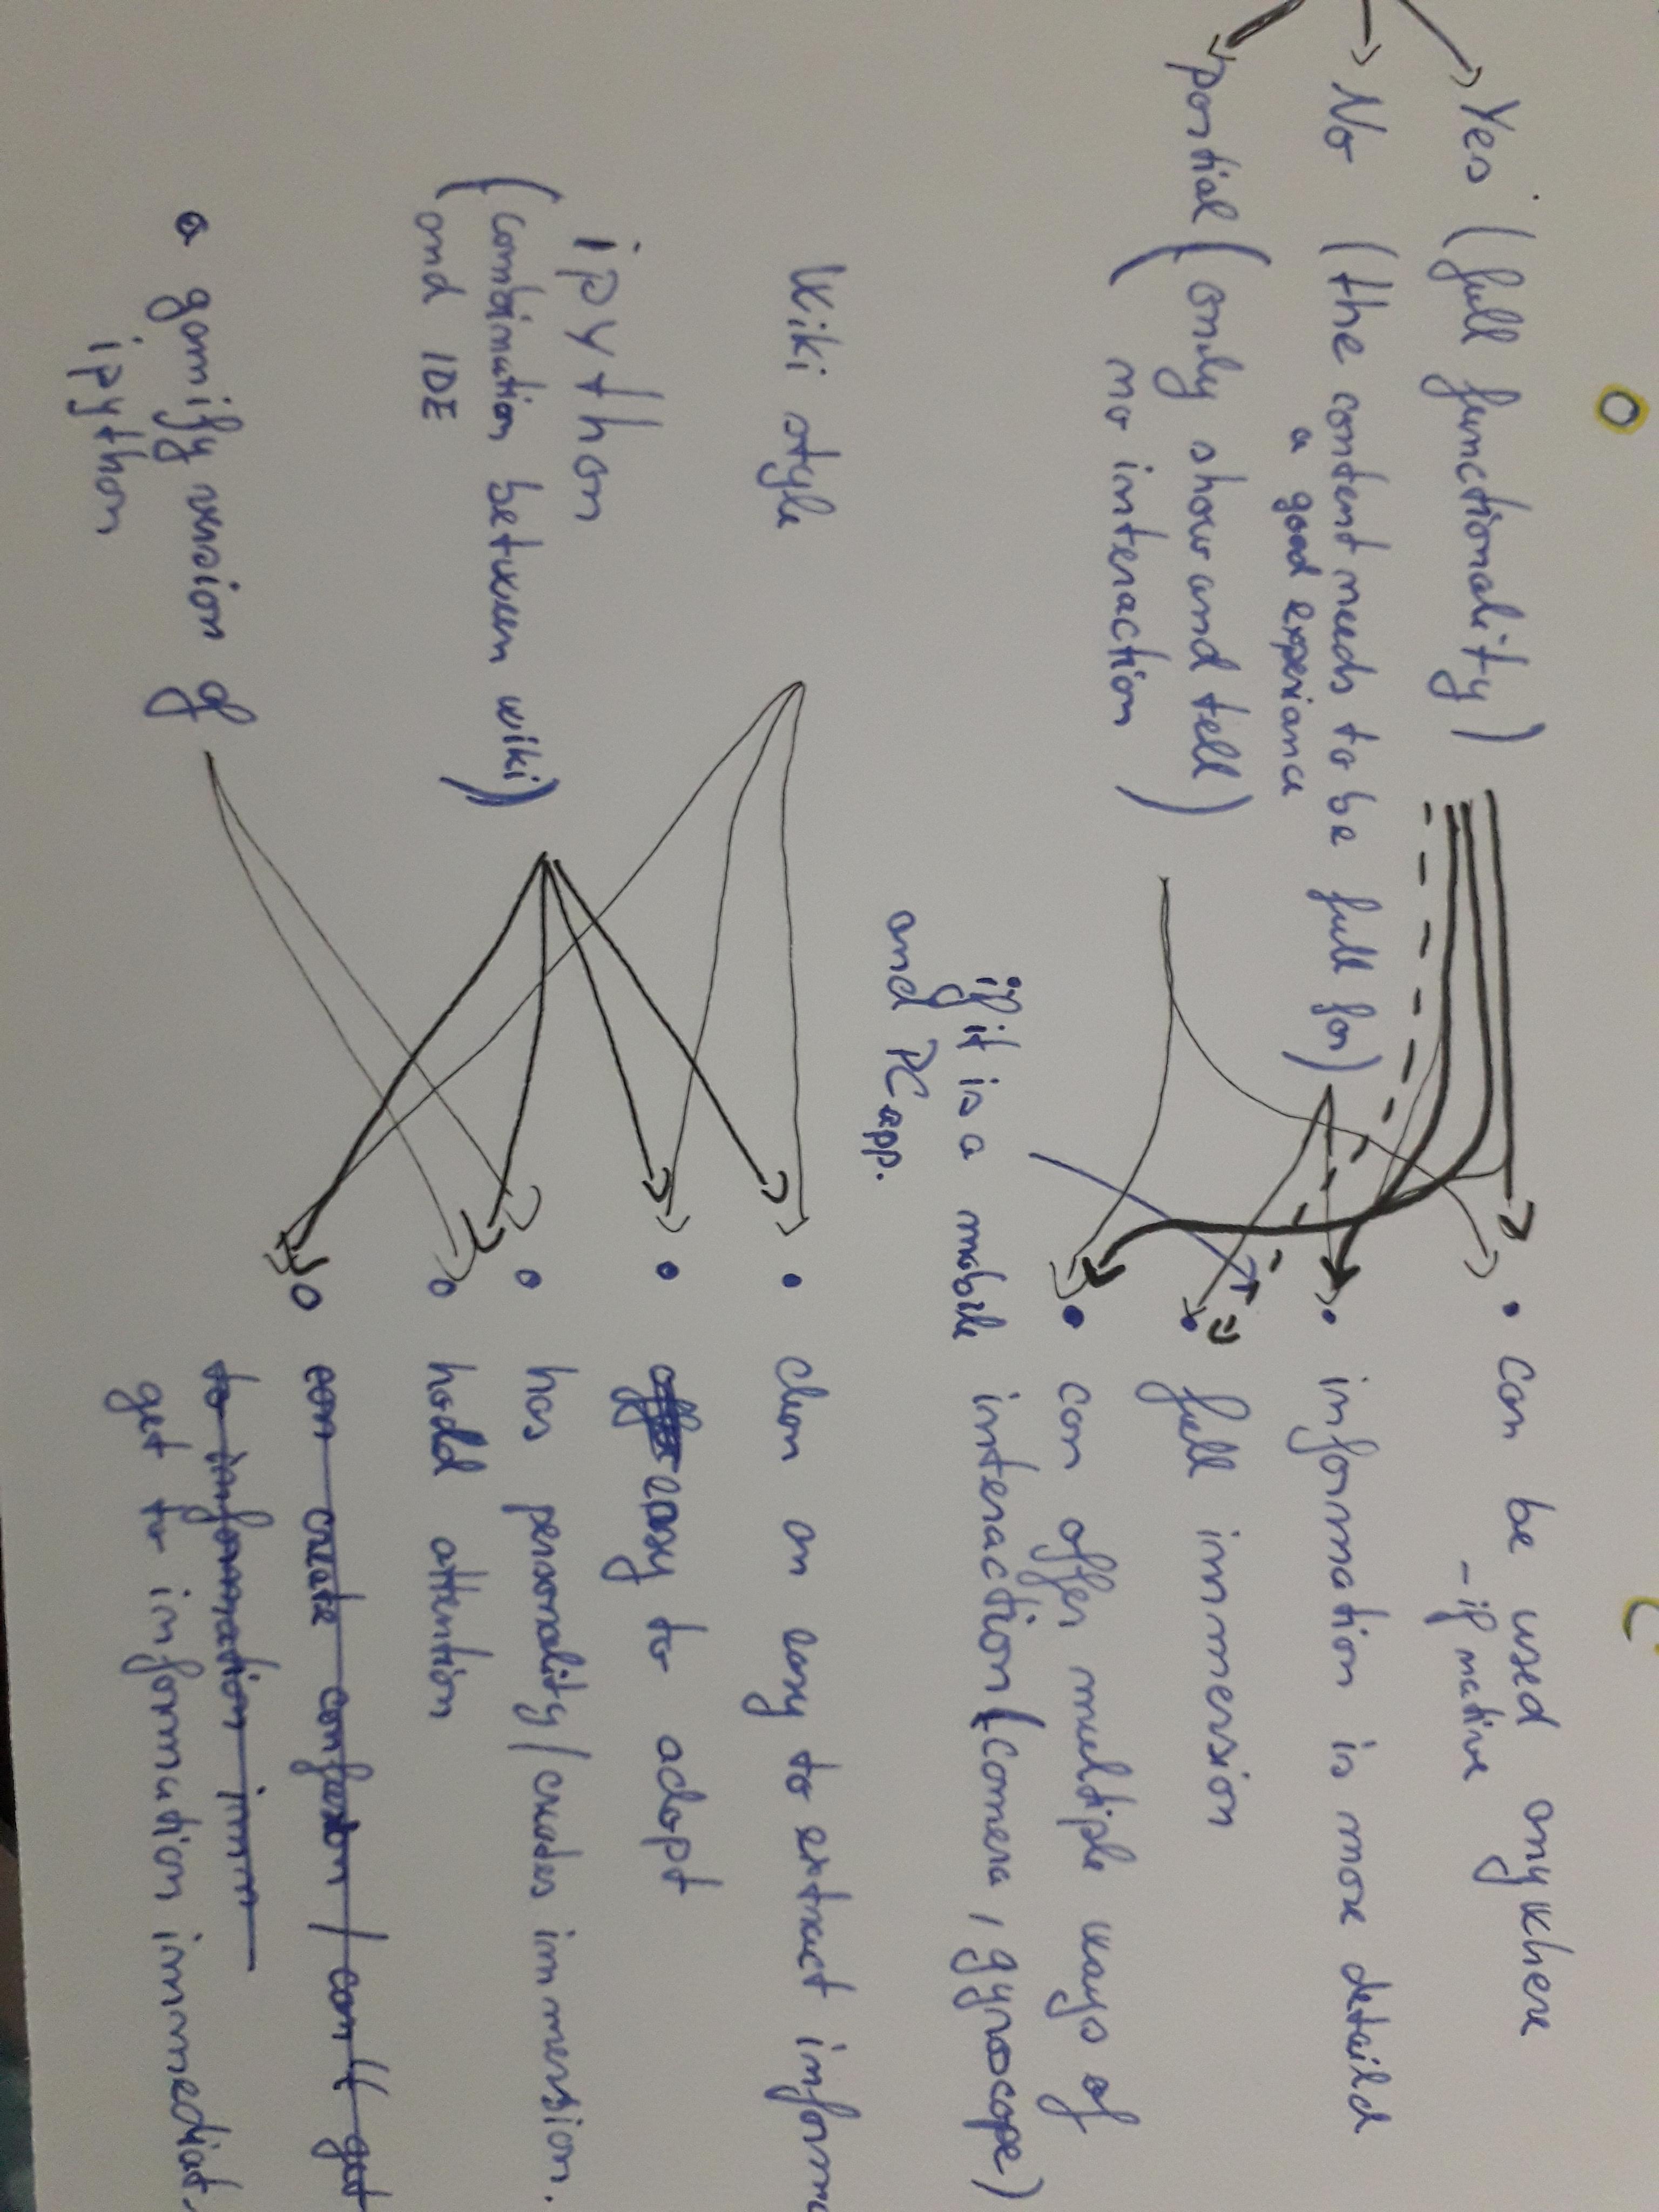 Yes (full functionality)
No (the content needs to be full for)
a good experiance
partial (only show and tell)
no interaction)
Wiki style
ipython
(combination between wiki)
and IDE
a gamify version of
ipython
• can be used anywhere
- if native
• information is more detaild
• full immersion
• can offer multiple ways of
interaction (camera, gyroscope)
if it is a mobile
and PC app.
• clean an easy to extract inform
• easy to adopt
• has personality/creates immersion.
• hodd attention
can create confusion / can't get
to information imm
get to information immediat.